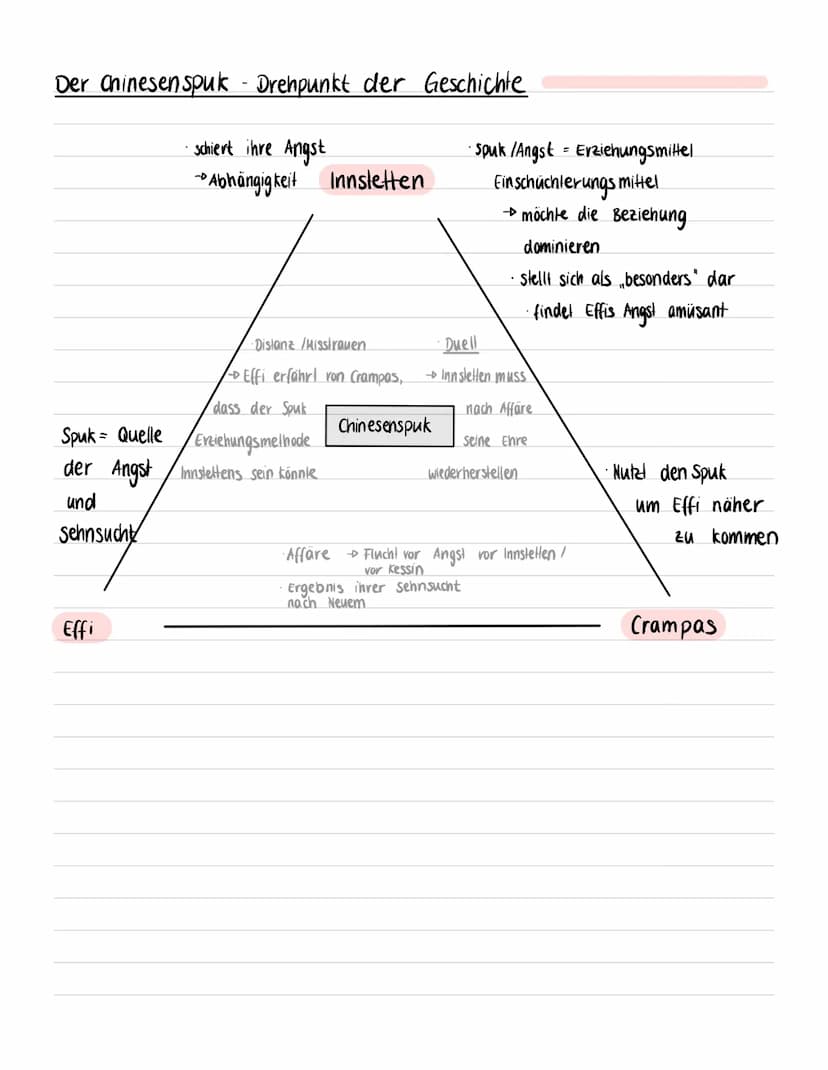 Der Chinesenspuk - Drehpunkt der Geschichte
· schiert ihre Angst
→ Abhängigkeit
Innstetten
· Spuk / Angst = Erziehungsmittel
Einschüchterungsmittel
→ möchte die Beziehung
dominieren
· stellt sich als „besonders" dar
· findet Effis Angst amüsant
· Distanz / Misstrauen
→ Effi erfährt von Crampas,
dass der Spuk
Erziehungsmethode
Innstettens sein könnte
· Duell
→ Innstetten muss
nach Affäre
seine Ehre
wiederherstellen
Chinesenspuk
Spuk = Quelle
der Angst
und
Sehnsucht
· Nutzt den Spuk
um Effi näher
zu kommen
· Affäre → Flucht vor Angst vor Innstetten /
vor Kessin
· Ergebnis ihrer Sehnsucht
nach Neuem
Effi
Crampas